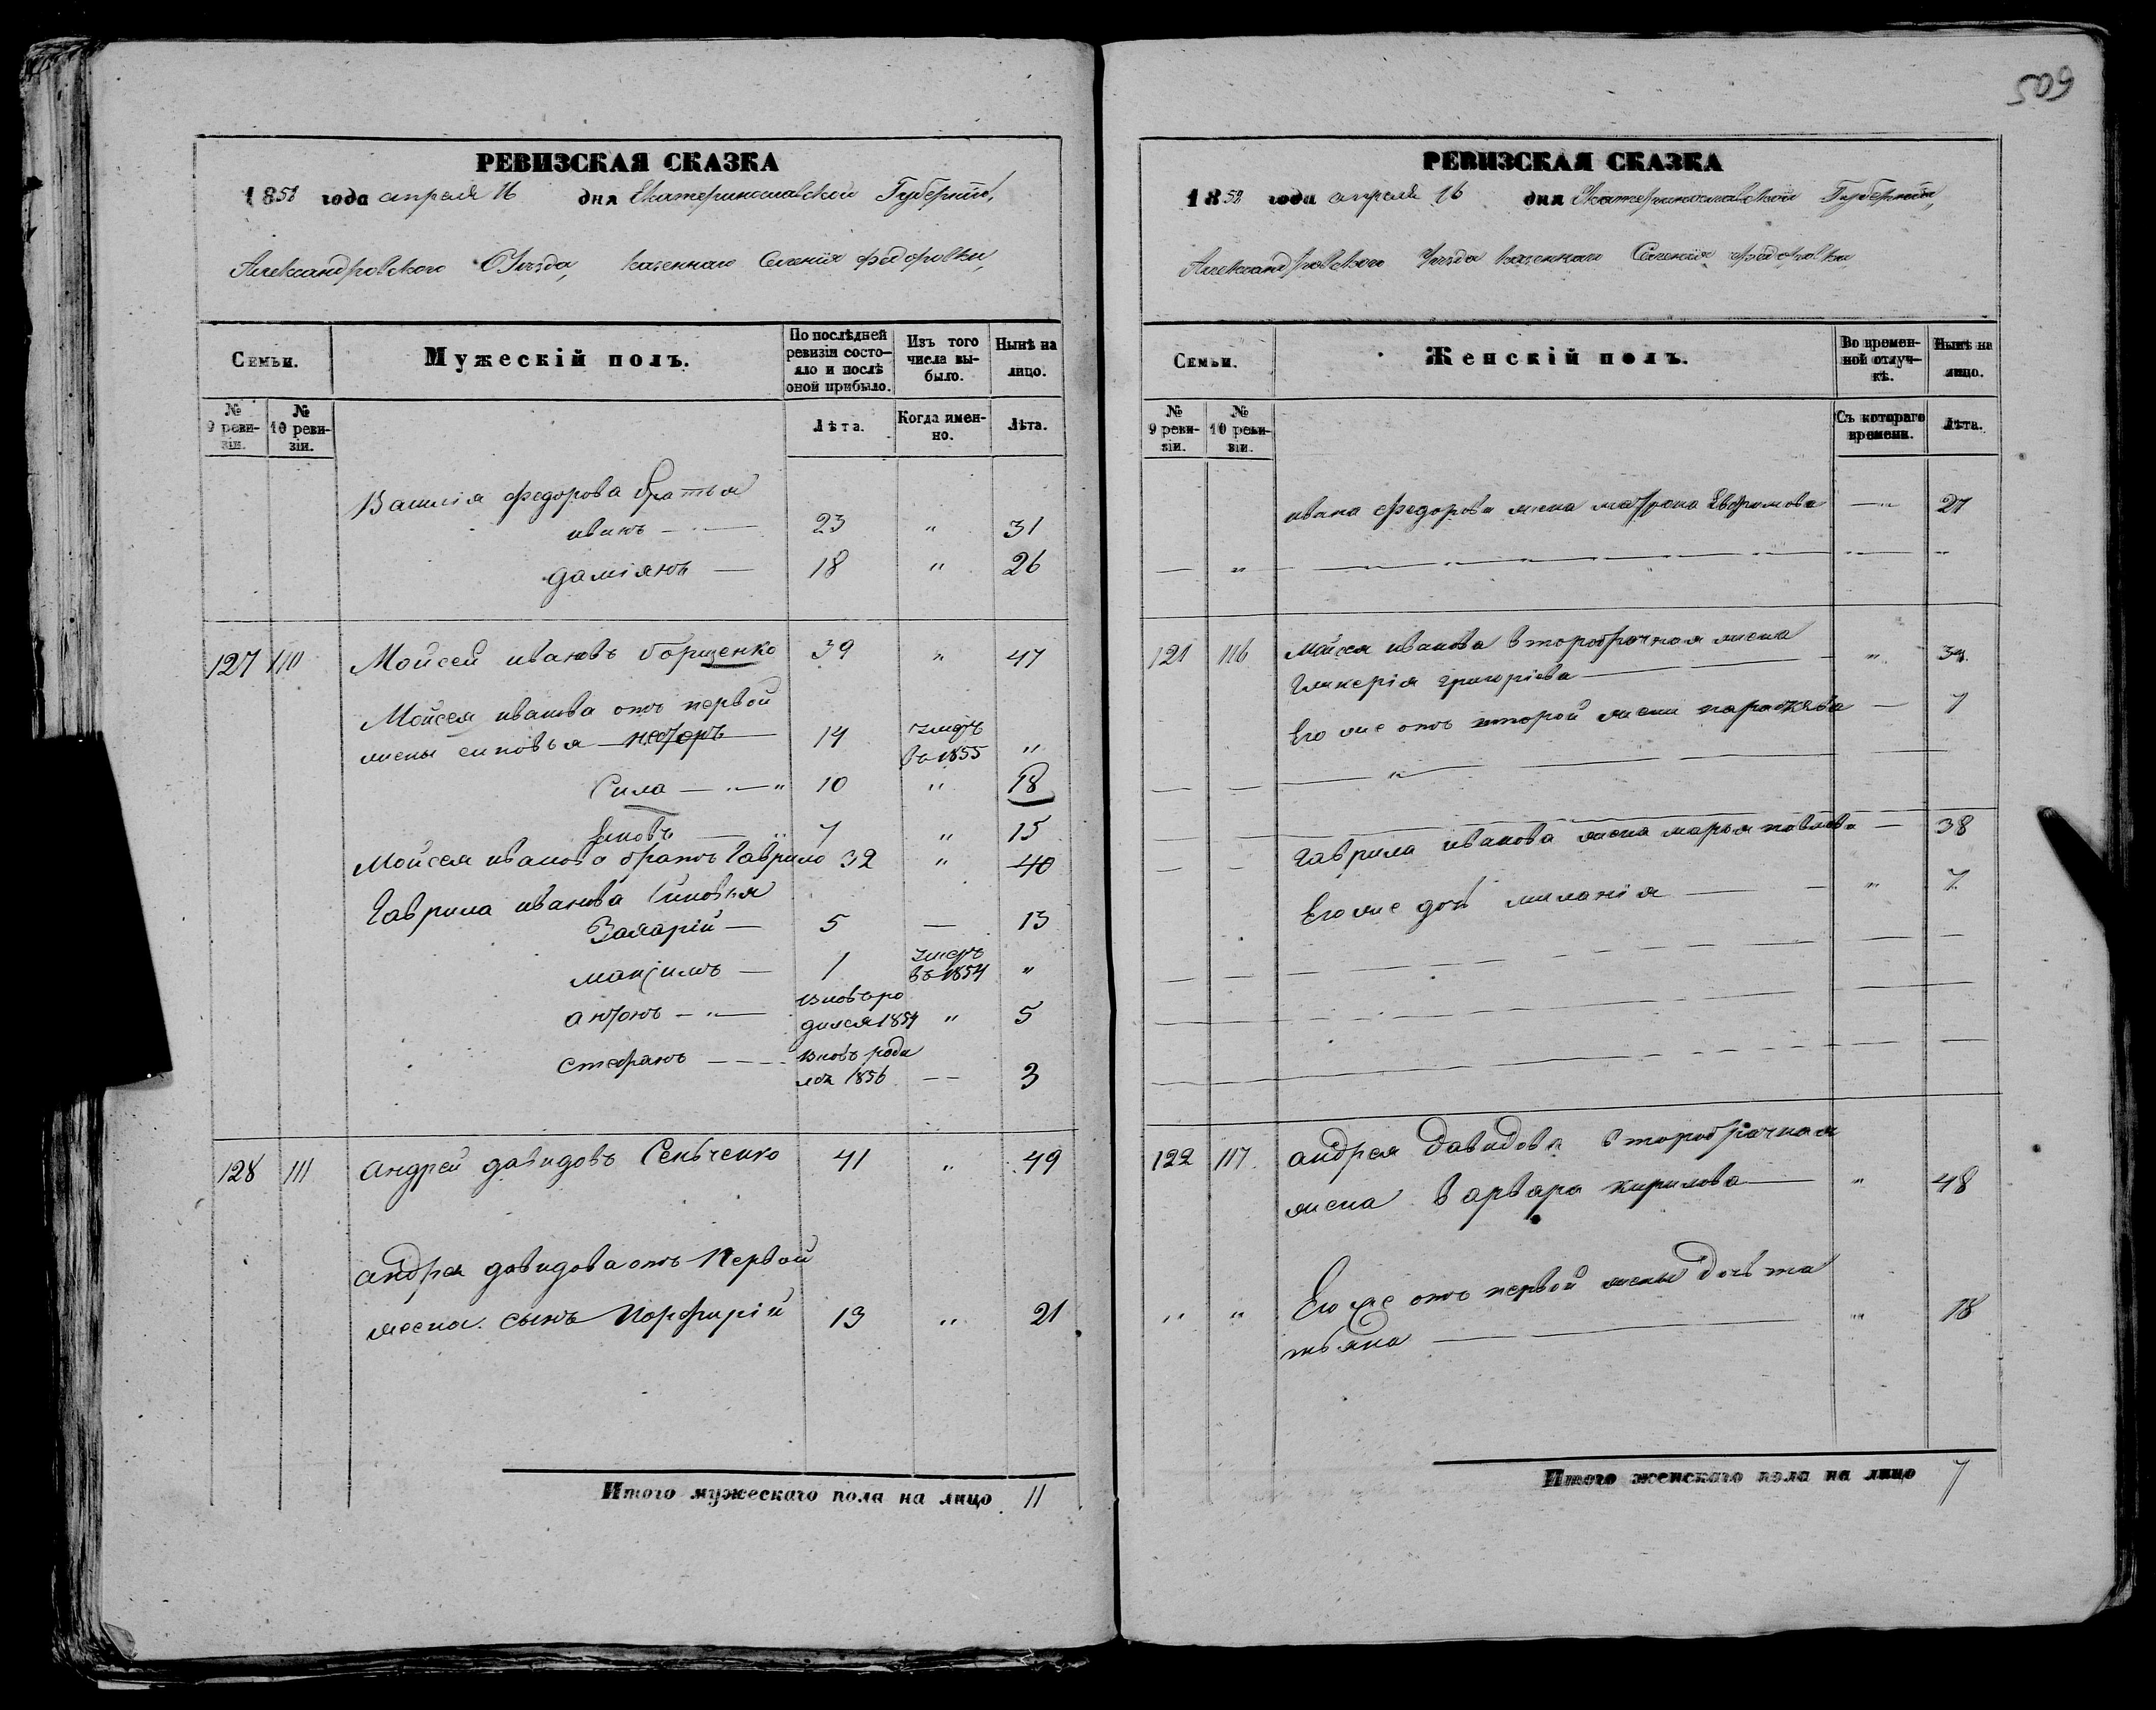 509
РЕВИЗСКАЯ СКАЗКА
1858 года апреля 16 дня Екатеринославской Губернiи,
Александровского Уѣзда, казеннаго Селенiя Федоровки,
Семьи.
Мужескiй полъ.
По послѣдней ревизiи состояло и послѣ оной прибыло.
Изъ того числа выбыло.
Нынѣ на лицо.
№ 9 ревизiи.
№ 10 ревизiи.
Лѣта.
Когда именно.
Лѣта.
Василiя федорова братья
иванъ — 23 " 31
дамiянъ — 18 " 26
127 110 Мойсей ивановъ борщенко 39 " 47
Мойсея иванова отъ первой
жены сыновья несторъ 14 умеръ въ 1855 "
Сила — " 10 " 18
Яковъ — 7 " 15
Мойсея иванова братъ Гаврило 32 " 40
Гаврила иванова Сыновья
Захарiй — 5 — 13
максимъ — 1 умеръ въ 1854 "
антонъ — вновь родился 1854 " 5
стефанъ — вновь роди лся 1856 — 3
128 111 андрей давидовъ Сенченко 41 " 49
андрея давидова отъ Первой
жены сынъ Порфирiй 13 " 21
Итого мужескаго пола на лицо 11
РЕВИЗСКАЯ СКАЗКА
1858 года апреля 16 дня Екатеринославской Губернiи,
Александровского Уѣзда казеннаго Селенiя Федоровки,
Семьи.
Женскiй полъ.
Во временной отлучкѣ.
Нынѣ на лицо.
№ 9 ревизiи.
№ 10 ревизiи.
Съ котораго времени.
Лѣта.
ивана федорова жена матрона Евфимова — " 27
121 116 Мойсея иванова второбрачная жена
Гликерiя григорiева — "
Его же отъ второй жены параскева — 7
Гаврила иванова жена марья павлова — 38
Его же дочь миланiя — " 7
122 117 андрея Давидова второбрачная
жена варвара кирилова — " 48
" " Его же отъ первой жены Дочь та
тьяна — " 18
Итого женскаго пола на лицо 7